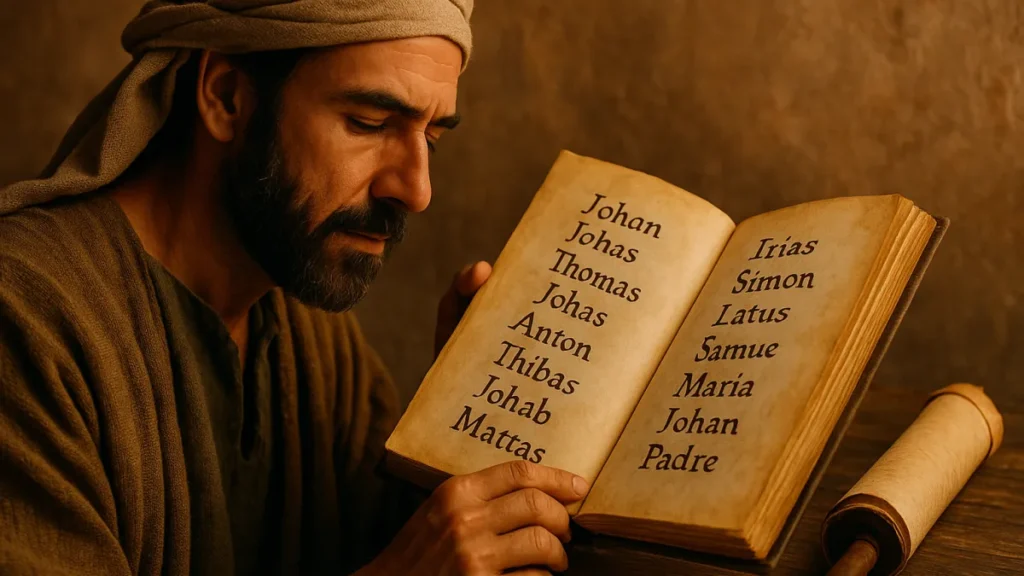 Johan
Johas
Thomas
Johas
Anton
Thibas
Johab
Mattas
Irias
Simon
Latus
Samue
Maria
Johan
Padre